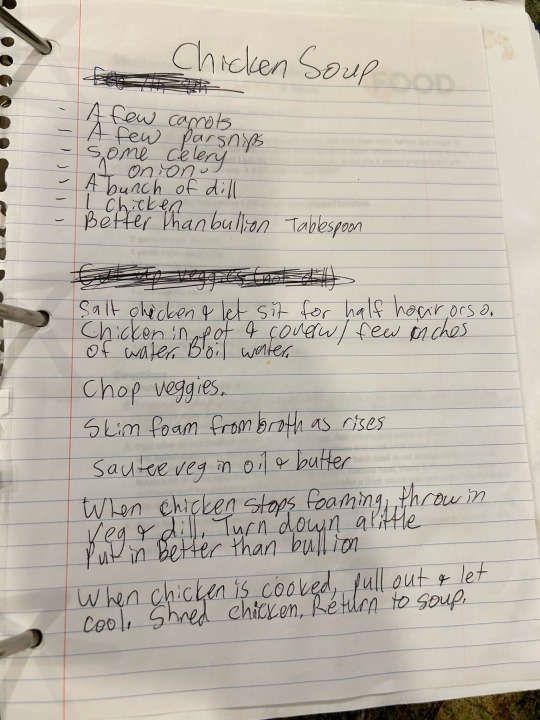 Chicken Soup
- A few carrots
- A few parsnips
- Some celery
- 1 onion
- A bunch of dill
- 1 chicken
- Better than bullion Tablespoon
Cut up veggies (not dill)
Salt chicken & let sit for half hour or so.
Chicken in pot & cover w/ few inches
of water. Boil water.
Chop veggies.
Skim foam from broth as rises
Sautee veg in oil & butter
When chicken stops foaming, throw in
veg & dill. Turn down a little
Put in Better than bullion
When chicken is cooked, pull out & let
cool. Shred chicken. Return to soup.